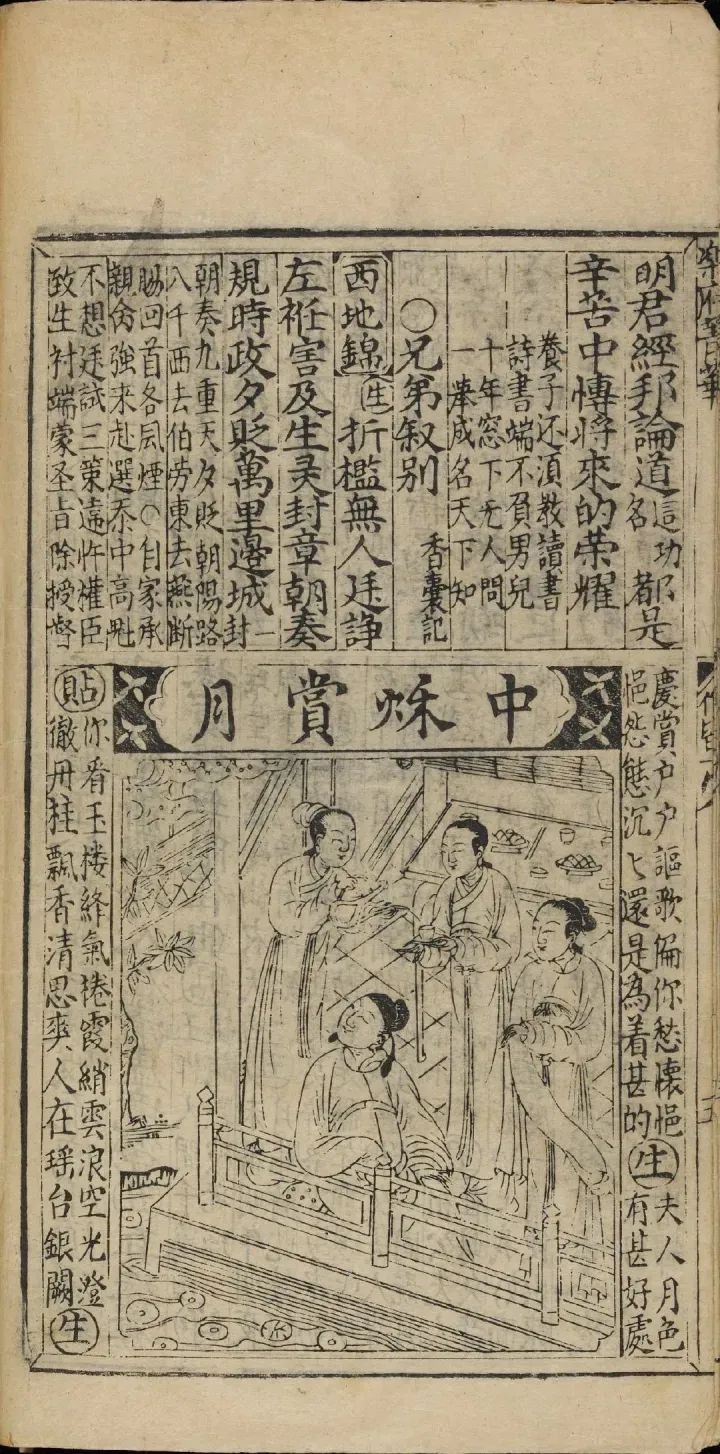 明君經邦論道這功名都是
辛苦中愽將來的荣耀
養子还湏教讀書
詩書端不負男兒
十年窓下无人問
一舉成名天下知
○兄弟叙别 香囊記
西地錦 生 折檻無人廷諍
左祍害及生灵封章朝奏
規時政夕貶萬里邊城一封
朝奏九重天夕貶朝陽路
八千西去伯劳東去燕断
回首各風煙○自家承
親命強來赴選忝中高魁
不想廷試三策遠忤權臣
致生端蒙圣旨除授督
慶賞戶戶謳歌偏你愁懷悒
悒怨態沉乀還是為着甚的 生 夫人月色
有甚好處
中秌賞月
貼 你看玉楼絳氣捲霞綃雲浪空光澄
徹丹桂飄香清思爽人在瑶台銀闕 生